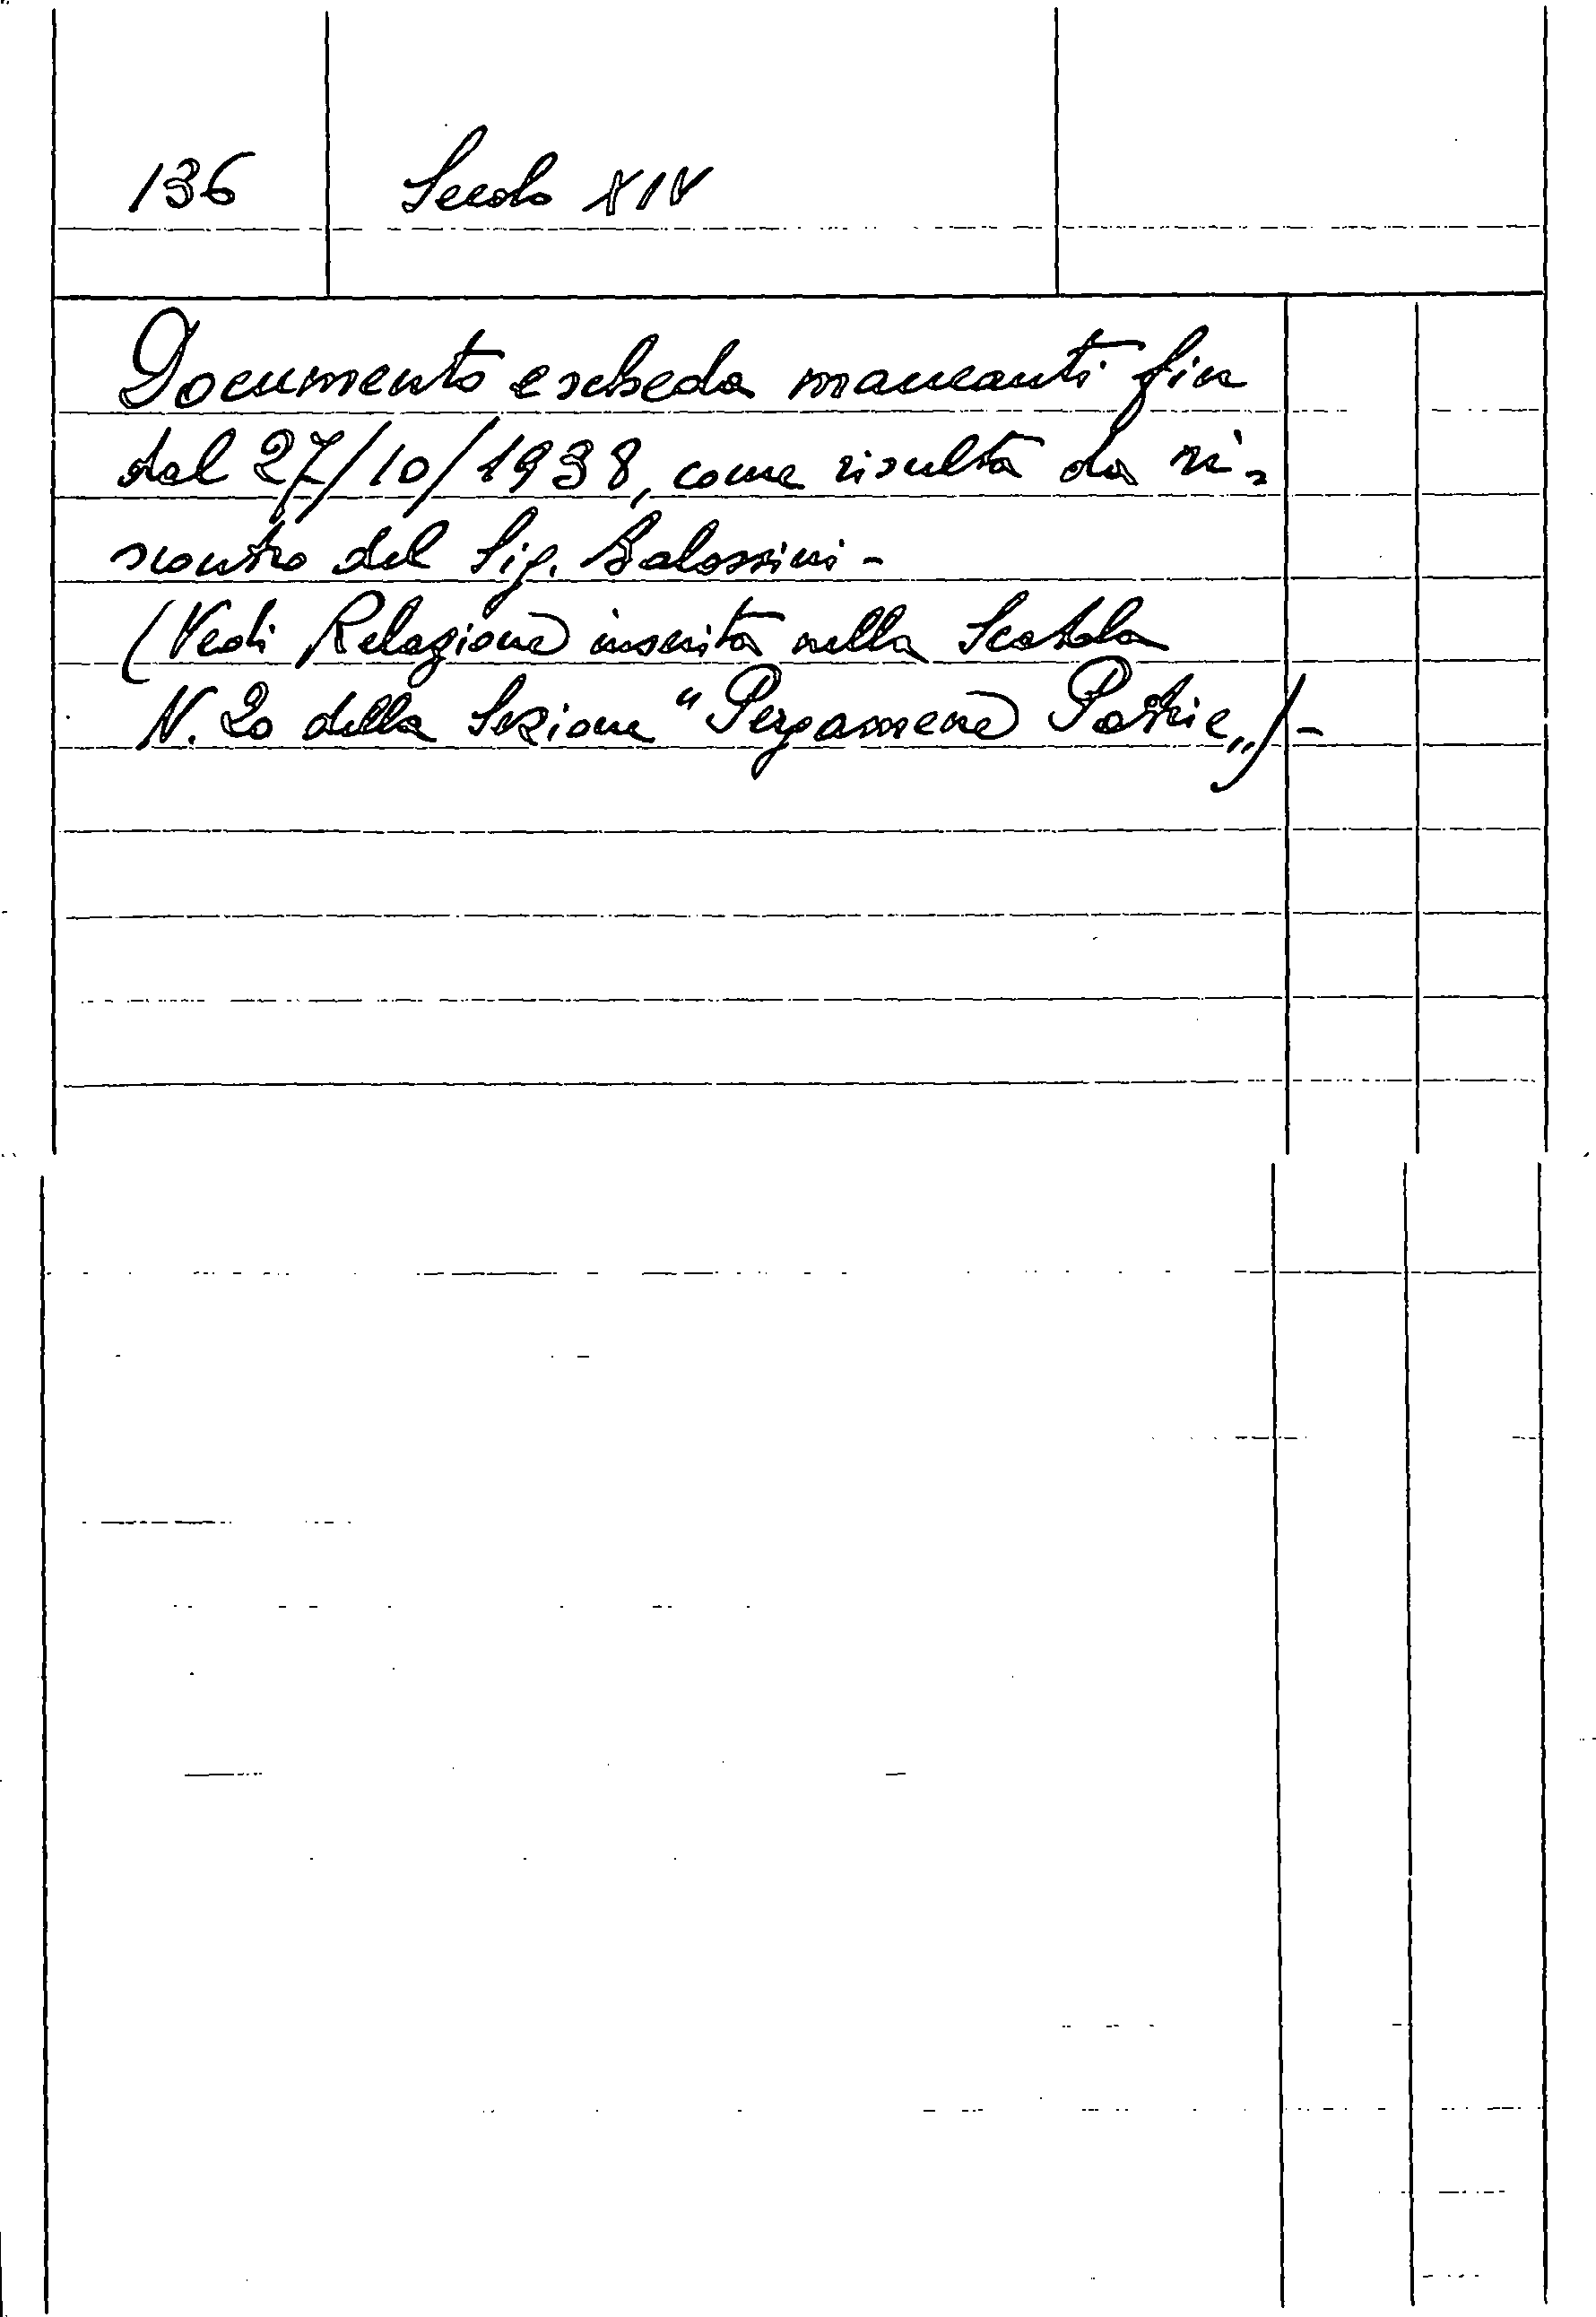 136 Secolo XIV
Documento e scheda mancanti fin
dal 27/10/1938, come risulta da ri-
scontro del Sig. Balossini -
(Vedi Relazione inserita nella Scatola
N. 20 della Sezione "Pergamene Patrie„) -